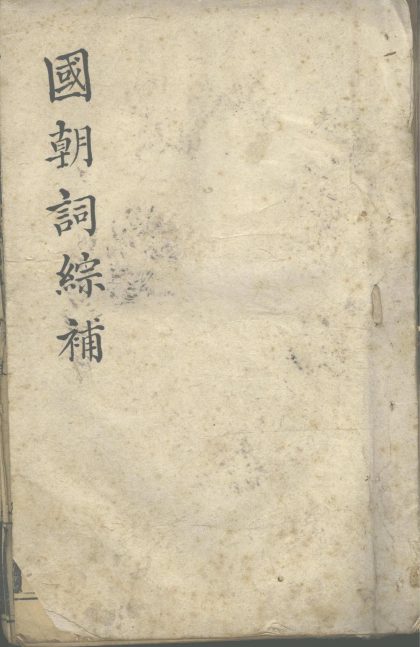 國朝詞綜補